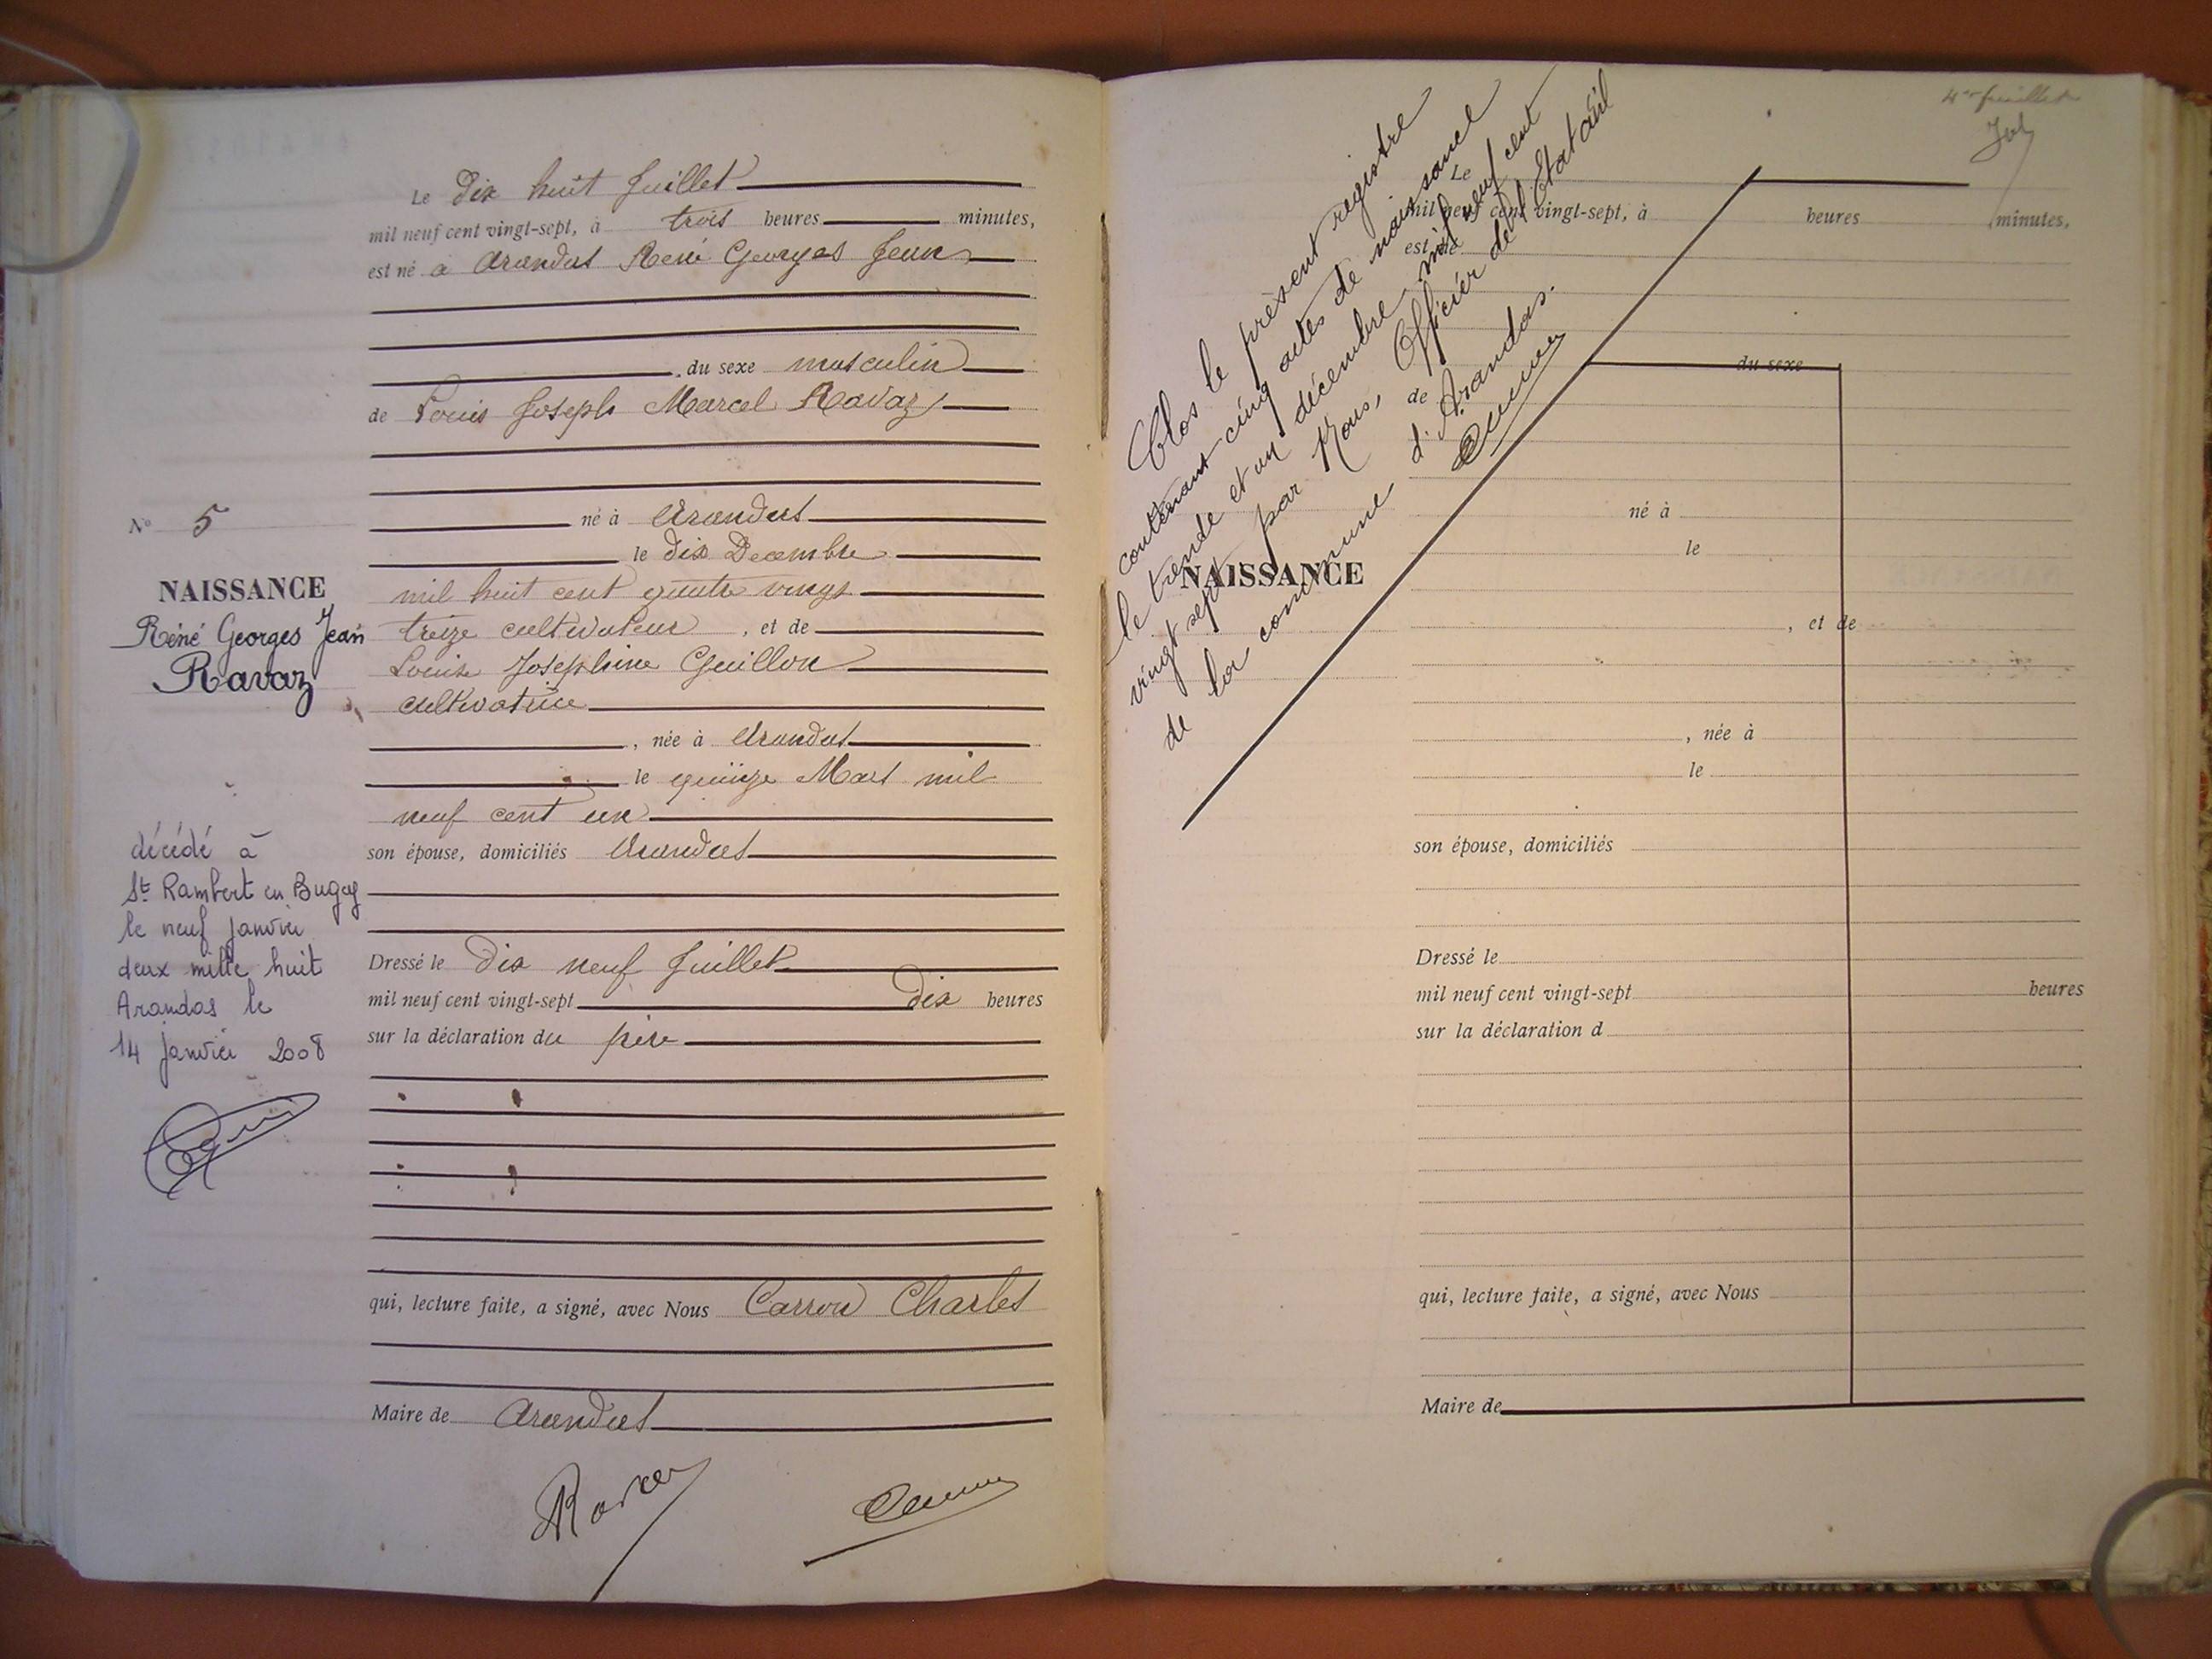 Le Dix huit Juillet
mil neuf cent vingt-sept, à trois heures minutes,
est né à Arandas René Georges Jean
du sexe masculin
de Louis Joseph Marcel Ravaz
né à Arandas
le dix Decembre
mil huit cent quatre vingt
treize cultivateur , et de
Louise Josephine Guillon
cultivatrice
, née à Arandas
le quinze Mars mil
neuf cent un
son épouse, domiciliés Arandas
Dressé le Dix neuf Juillet
mil neuf cent vingt-sept Dix heures
sur la déclaration du père
qui, lecture faite, a signé, avec Nous Carron Charles
Maire de Arandas
Ravaz
No 5
NAISSANCE
Réné Georges Jean
Ravaz
décédé à
St Rambert en Bugey
le neuf janvier
deux mille huit
Arandas le
14 janvier 2008
4e feuillet
Clos le présent registre
contenant cinq actes de naissance
le trente et un décembre mil neuf cent
vingt sept par Nous, Officier de l'Etat civil
de la commune d'Arandas.
Le
mil neuf cent vingt-sept, à heures minutes,
est né
du sexe
de
né à
le
NAISSANCE
, et de
, née à
le
son épouse, domiciliés
Dressé le
mil neuf cent vingt-sept heures
sur la déclaration d
qui, lecture faite, a signé, avec Nous
Maire de